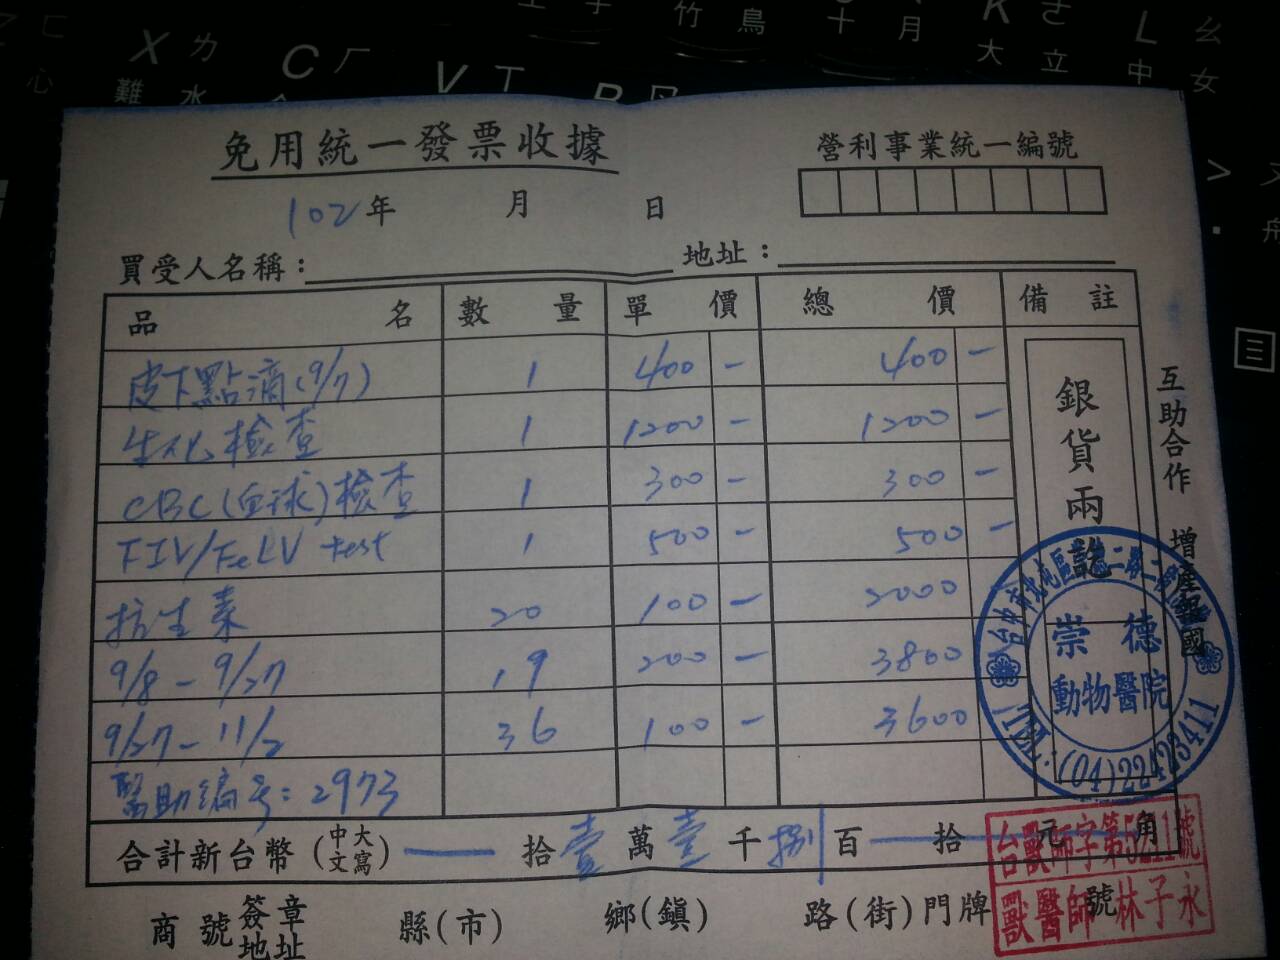 免用統一發票收據
營利事業統一編號
102年 月 日
買受人名稱: 地址:
品名 數量 單價 總價 備註
皮下點滴(9/7) 1 400 - 400 -
生化檢查 1 1200 - 1200 -
CBC(血球)檢查 1 300 - 300 -
FIV/FeLV test 1 500 - 500 -
抗生素 20 100 - 2000
9/8 - 9/27 19 200 - 3800
9/27 - 11/2 36 100 - 3600
醫助編号: 2973
銀貨兩訖
互助合作 增產報國
崇德
動物醫院
(04)22423411
合計新台幣(中文大寫) 拾壹萬壹千捌百 拾 元 角
台獸師字第5211號
獸醫師林子永
商號簽章地址 縣(市) 鄉(鎮) 路(街)門牌 號
X ㄌ C ㄏ V ㄒ
K ㄜ L ㄠ
難 水 竹 鳥 十 月 大 立 中 女
心